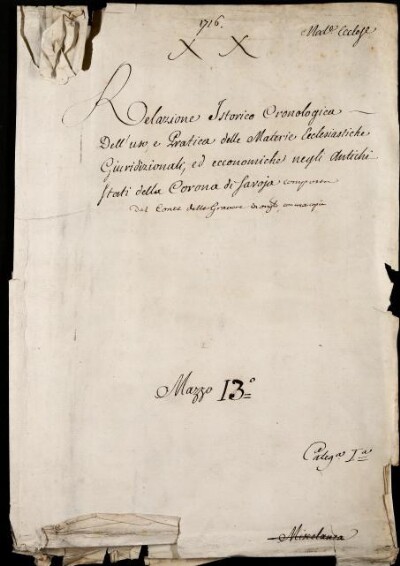 1716.
Mate Eccles
X X
Relazione Istorico Cronologica
Dell'uso e Pratica delle Materie Ecclesiastiche
Giurisdizionali, ed economiche negli Antichi
Stati della Corona di Savoja
dal Conte delle
Mazzo 13º
Categª Iª
Miscelanea